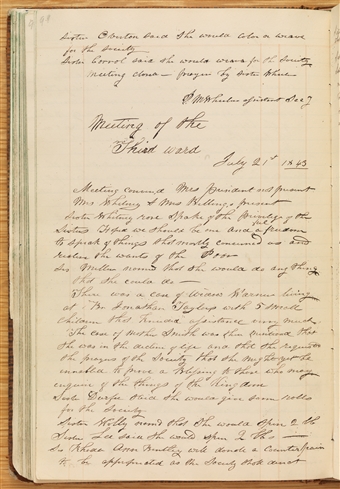 Sister Overton said she would color a weave
for the Society
Sister Carrol said she would weave for the Society
meeting closed — prayer by Sister Wheeler
P M Wheeler assistant Secy
Meeting of the
Third ward
July 21st 1843
Meeting convened Mrs President not present
Mrs Whitney & Mrs Hollings present
Sister Whitney rose Spoke of the Privilege of the
Sisters Hoped we should be one and a freedom
to speak of things that mostly concerned us and
realise the wants of the Poor
Sis Miller resumd that she would do any thing
that she could do —
There was a case of Widow Warner living
at Br Jonathan Taylors with 5 small
Children that needed assistance very much
The case of Mother Smith was then mentioned that
she was in the decline of life and that she requested
the prayers of the Society that she might yet be
enabled to prove a blessing to those who may
enquire of the things of the Kingdom
Sister Durfee said she would give some
for the Society
Sister said that she would spin 2 lbs
Sister Lee said she would spin 2 lbs —
Sis Rhoda Ann Bentley will donate a Counterpain
to be appropriated as the Society think